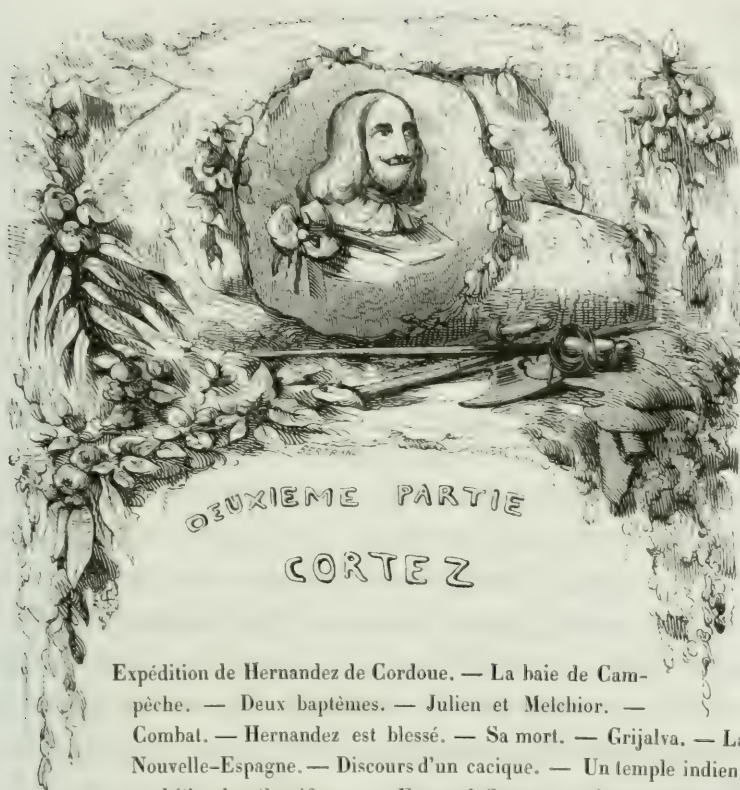 DEUXIEME PARTIE
CORTEZ
Expédition de Hernandez de Cordoue. — La baie de Cam-
pêche. — Deux baptêmes. — Julien et Melchior. —
Combat. — Hernandez est blessé. — Sa mort. — Grijalva. — La
Nouvelle-Espagne. — Discours d'un cacique. — Un temple indien